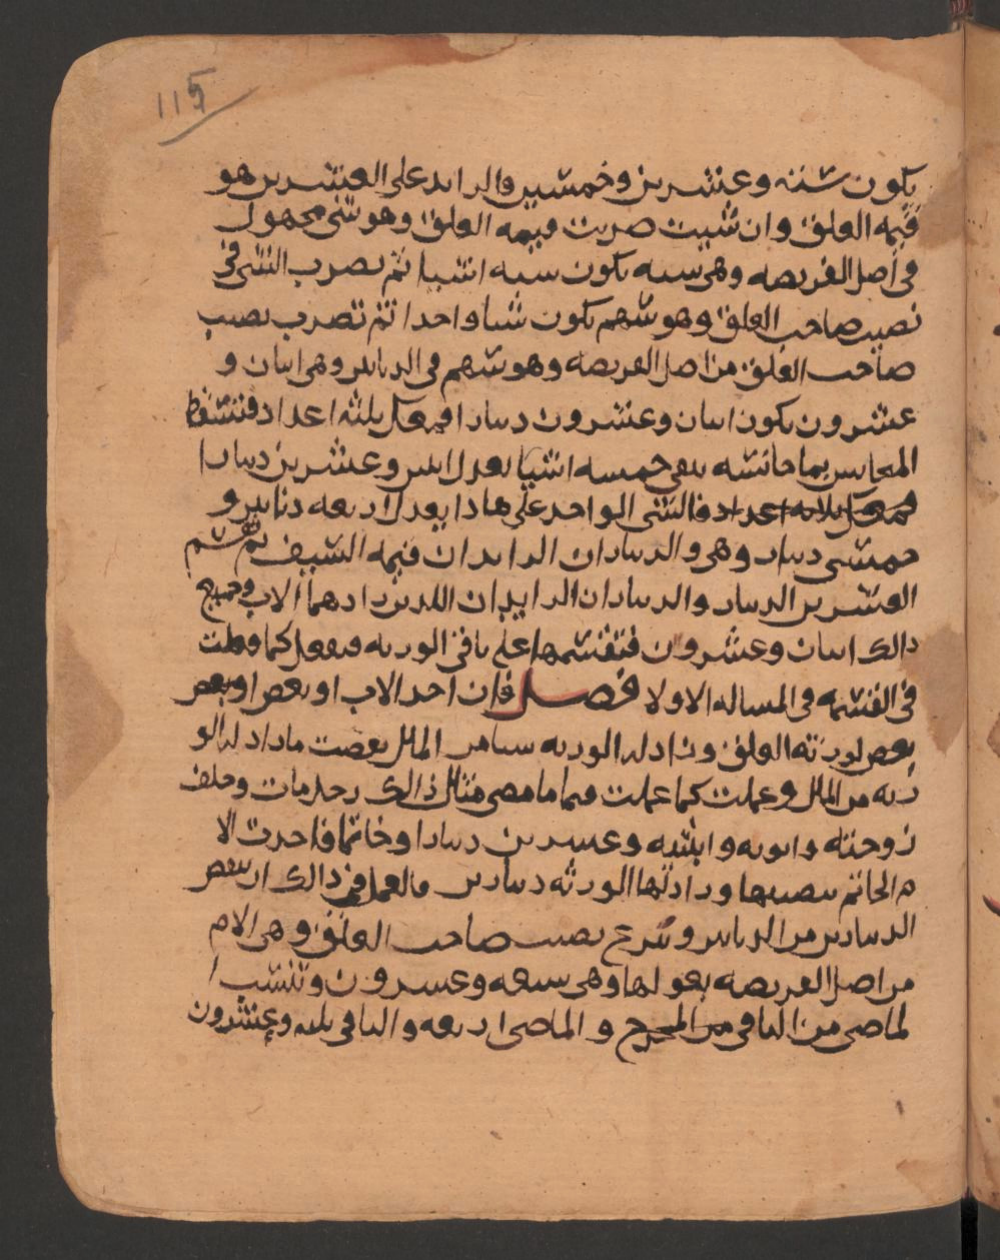 115
يكون ستة وعشرين وخمسين فالزايد على العشرين هو
قيمة العلق وان شيت ضربت قيمة العلق وهو شى مجهول
فى اصل الفريضه وهى سته يكون سته اشيا ثم تضرب الشى فى
نصيب صاحب العلق وهو سهم يكون شيا واحدا ثم تضرب نصيب
صاحب العلق من اصل الفريضه وهو سهم فى الدنانير وهى اثنان و
عشرون يكون اثنان وعشرون دينارا فمعك ثلثة اعداد فتسقط
المجانس بما جانسه يبقى خمسه اشيا يعدل اثنين وعشرين دينارا
فمعك ثلاثه اعداد فالشى الواحد على هاذا يعدل اربعه دنانير و
خمسى دينار وهى والديناران الزايدان قيمة السيف ثم تقسم
العشرين الدينار والديناران الزايدان اللذين زادهما الاب وجميع
ذالك اثنان وعشرون فتقسمها على باقى الورثه وتفعل كما فعلت
فى القسمه فى المساله الاولا فصل فان اخذ الاب او بعض او بعض
بعض لورثته العلق وزاد له الورثه شيا من المال نقصت ما زاد له الو
رثه من المال وعملت كما عملت فيما ما مضى مثال ذالك رجل مات وخلف
زوجته وابويه وابنتيه وعشرين دينارا وخاتما فاخذت الا
م الخاتم بنصيبها وزادتها الورثه دينارين فالعمل فى ذالك ان تنقص
الدينارين من الدنانير و نصيب صاحب العلق وهى الام
من اصل الفريضه بعولها وهى سبعه وعشرون وتنسب ا
لماضى من الباقى من المخرج و الماضى اربعه والباقى ثلثه وعشرون